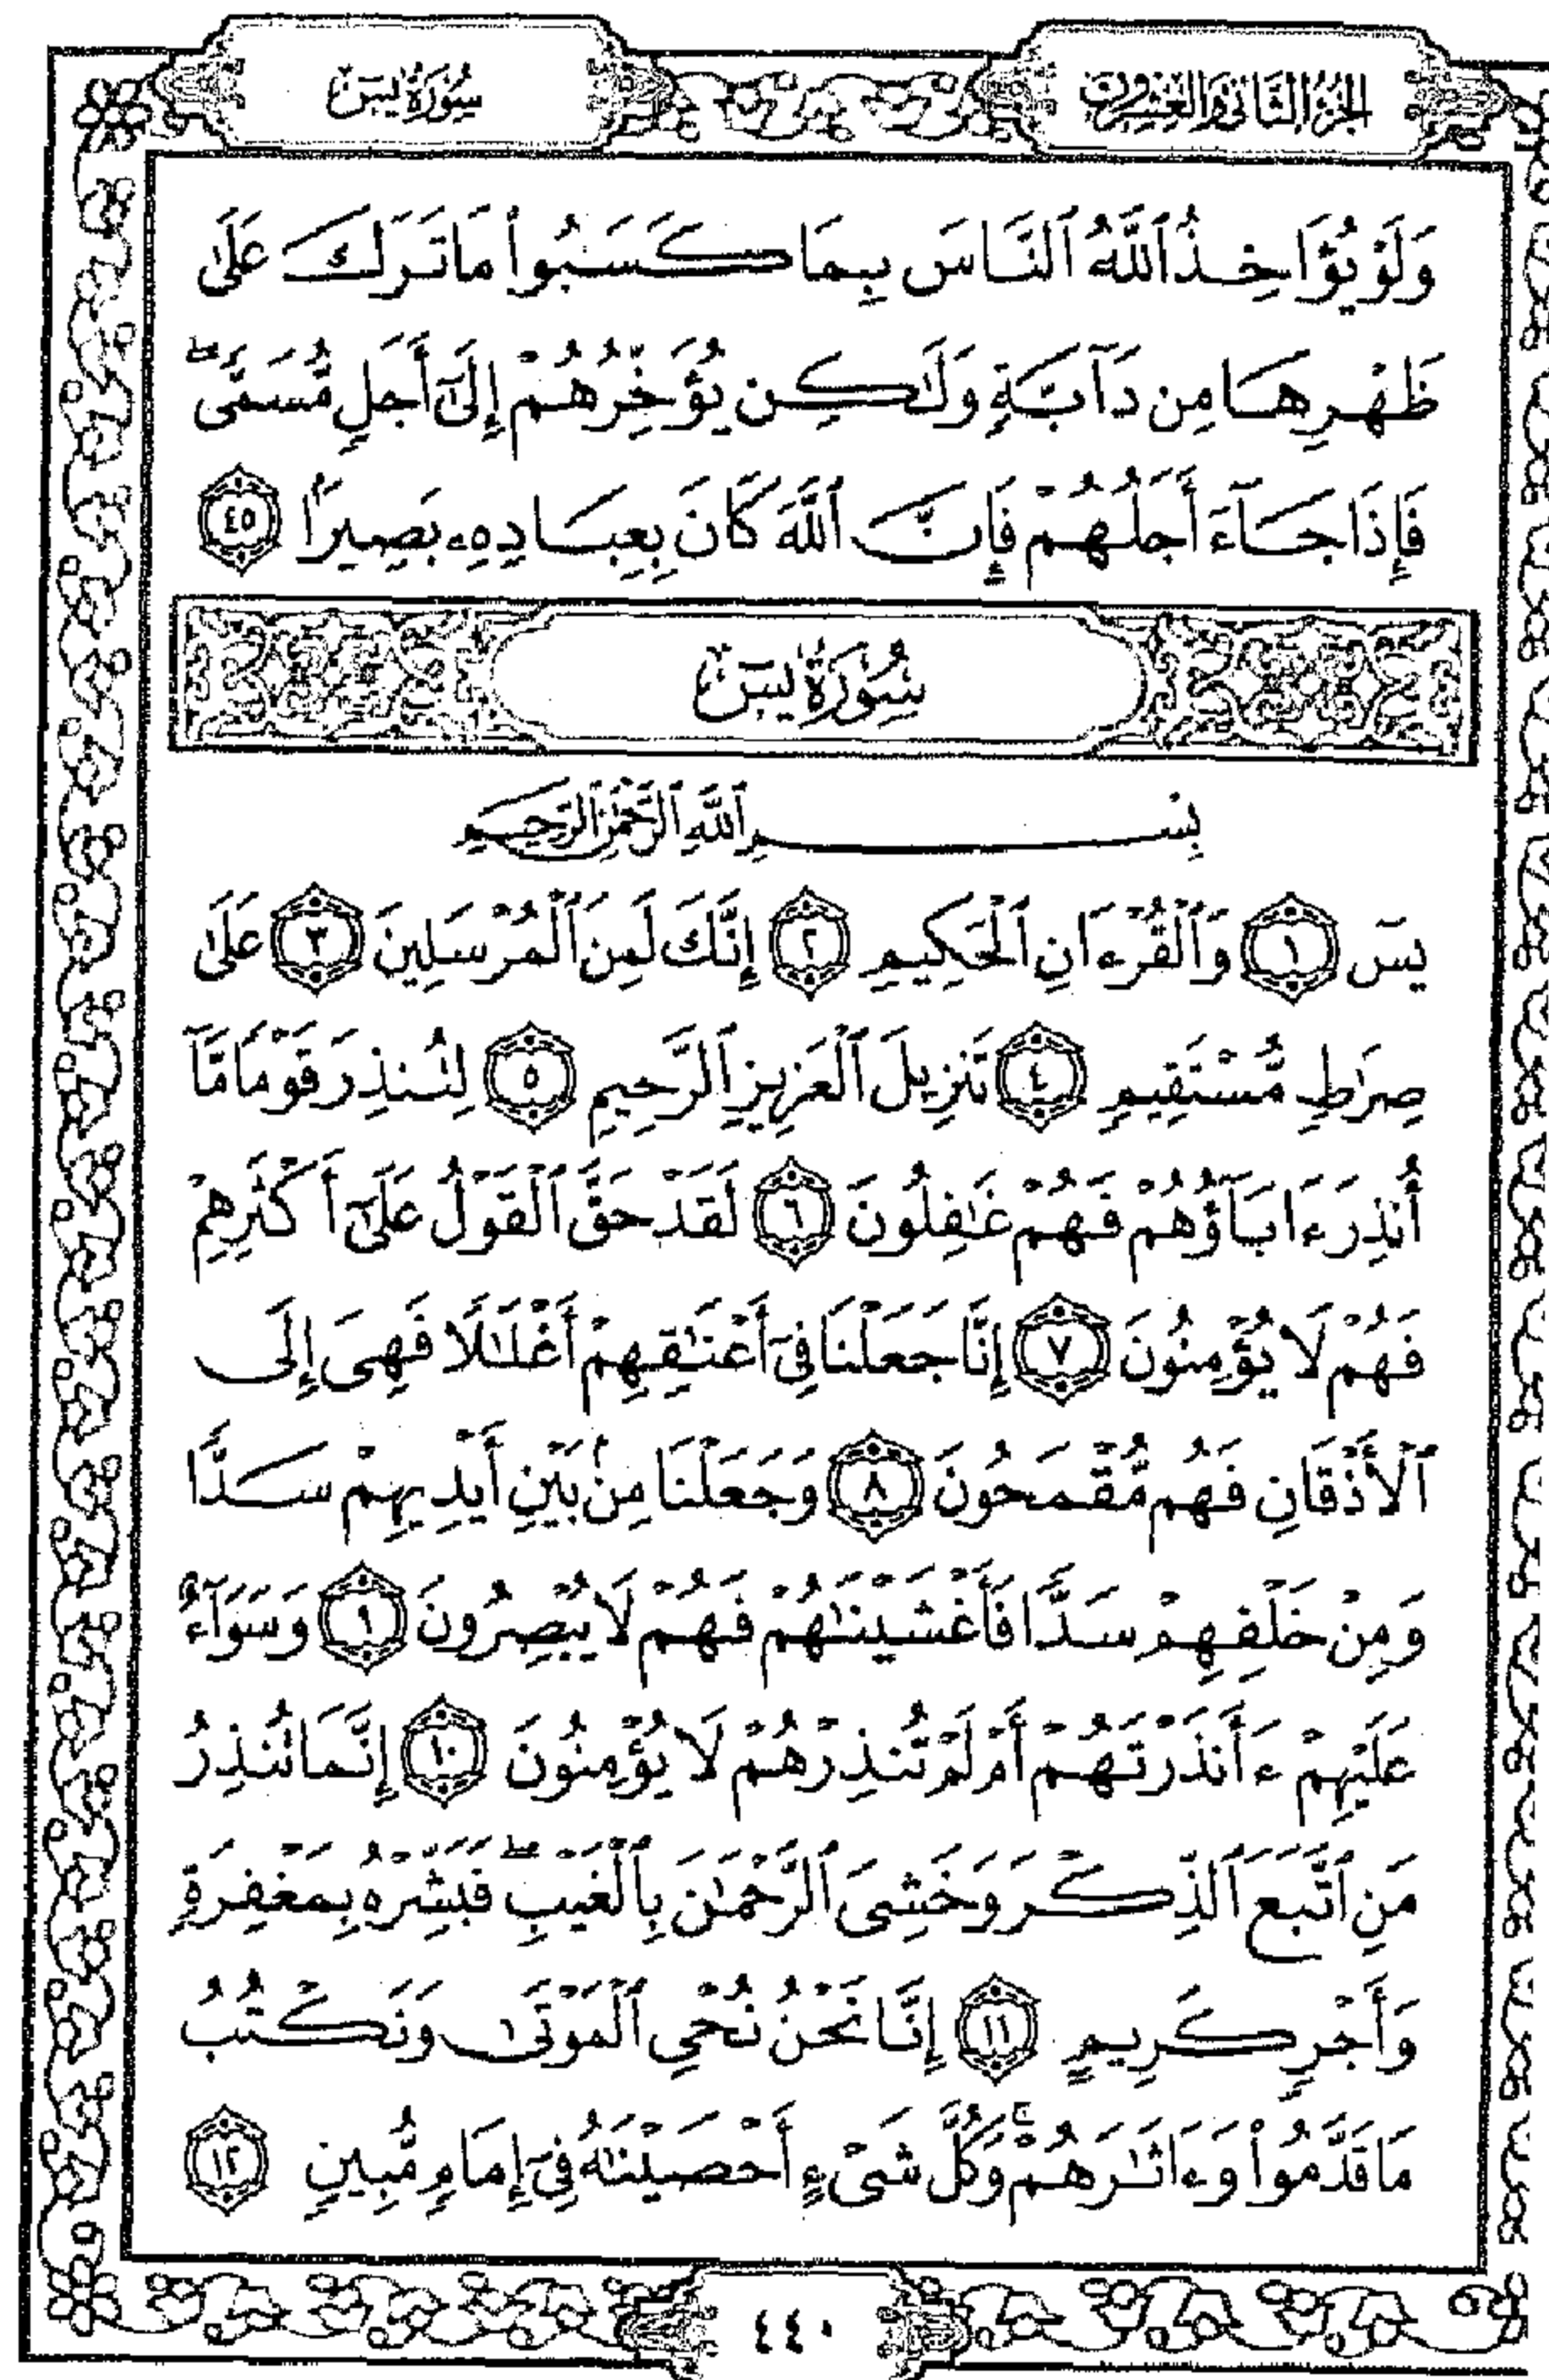 الجزء الثاني والعشرون
سورة يس
وَلَوْ يُؤَاخِذُ ٱللَّهُ ٱلنَّاسَ بِمَا كَسَبُوا۟ مَا تَرَكَ عَلَىٰ
ظَهْرِهَا مِن دَآبَّةٍ وَلَٰكِن يُؤَخِّرُهُمْ إِلَىٰٓ أَجَلٍ مُّسَمًّى ۖ
فَإِذَا جَآءَ أَجَلُهُمْ فَإِنَّ ٱللَّهَ كَانَ بِعِبَادِهِۦ بَصِيرًۢا ٤٥
سُورَةُ يسٓ
بِسْمِ ٱللَّهِ ٱلرَّحْمَٰنِ ٱلرَّحِيمِ
يسٓ ١ وَٱلْقُرْءَانِ ٱلْحَكِيمِ ٢ إِنَّكَ لَمِنَ ٱلْمُرْسَلِينَ ٣ عَلَىٰ
صِرَٰطٍ مُّسْتَقِيمٍ ٤ تَنزِيلَ ٱلْعَزِيزِ ٱلرَّحِيمِ ٥ لِتُنذِرَ قَوْمًا مَّآ
أُنذِرَ ءَابَآؤُهُمْ فَهُمْ غَٰفِلُونَ ٦ لَقَدْ حَقَّ ٱلْقَوْلُ عَلَىٰٓ أَكْثَرِهِمْ
فَهُمْ لَا يُؤْمِنُونَ ٧ إِنَّا جَعَلْنَا فِىٓ أَعْنَٰقِهِمْ أَغْلَٰلًا فَهِىَ إِلَى
ٱلْأَذْقَانِ فَهُم مُّقْمَحُونَ ٨ وَجَعَلْنَا مِنۢ بَيْنِ أَيْدِيهِمْ سَدًّا
وَمِنْ خَلْفِهِمْ سَدًّا فَأَغْشَيْنَٰهُمْ فَهُمْ لَا يُبْصِرُونَ ٩ وَسَوَآءٌ
عَلَيْهِمْ ءَأَنذَرْتَهُمْ أَمْ لَمْ تُنذِرْهُمْ لَا يُؤْمِنُونَ ١٠ إِنَّمَا تُنذِرُ
مَنِ ٱتَّبَعَ ٱلذِّكْرَ وَخَشِىَ ٱلرَّحْمَٰنَ بِٱلْغَيْبِ ۖ فَبَشِّرْهُ بِمَغْفِرَةٍ
وَأَجْرٍ كَرِيمٍ ١١ إِنَّا نَحْنُ نُحْىِ ٱلْمَوْتَىٰ وَنَكْتُبُ
مَا قَدَّمُوا۟ وَءَاثَٰرَهُمْ ۚ وَكُلَّ شَىْءٍ أَحْصَيْنَٰهُ فِىٓ إِمَامٍ مُّبِينٍ ١٢
٤٤٠